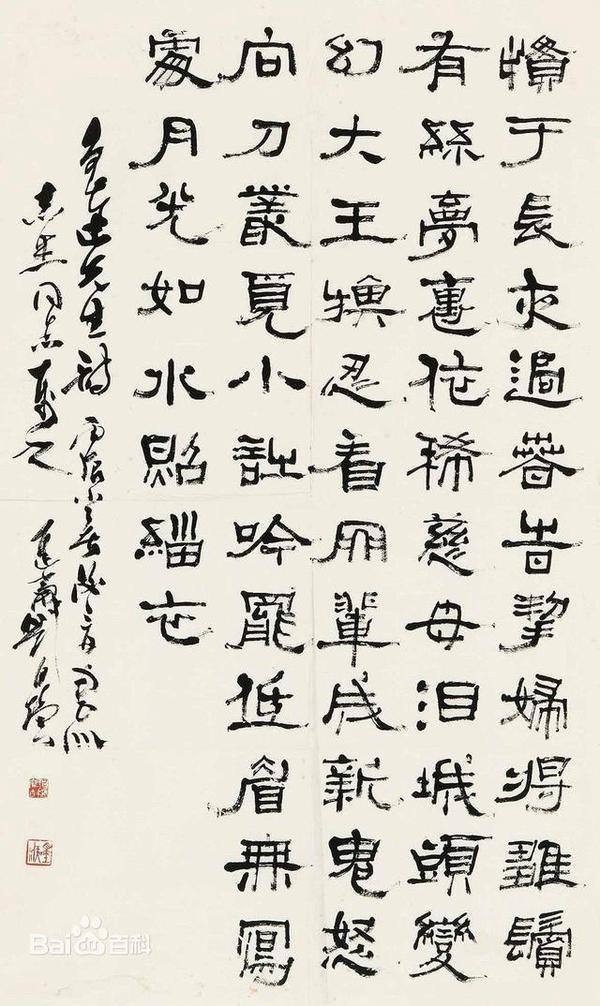 慣于長夜過萅旹挈婦將雛鬢
有絲夢裏依稀慈母泪城頭變
幻大王旗忍看朋輩成新鬼怒
向刀叢覓小詩吟罷低眉無寫
處月光如水照緇衣
魯迅先生詩 丙辰
同志
Bai百科